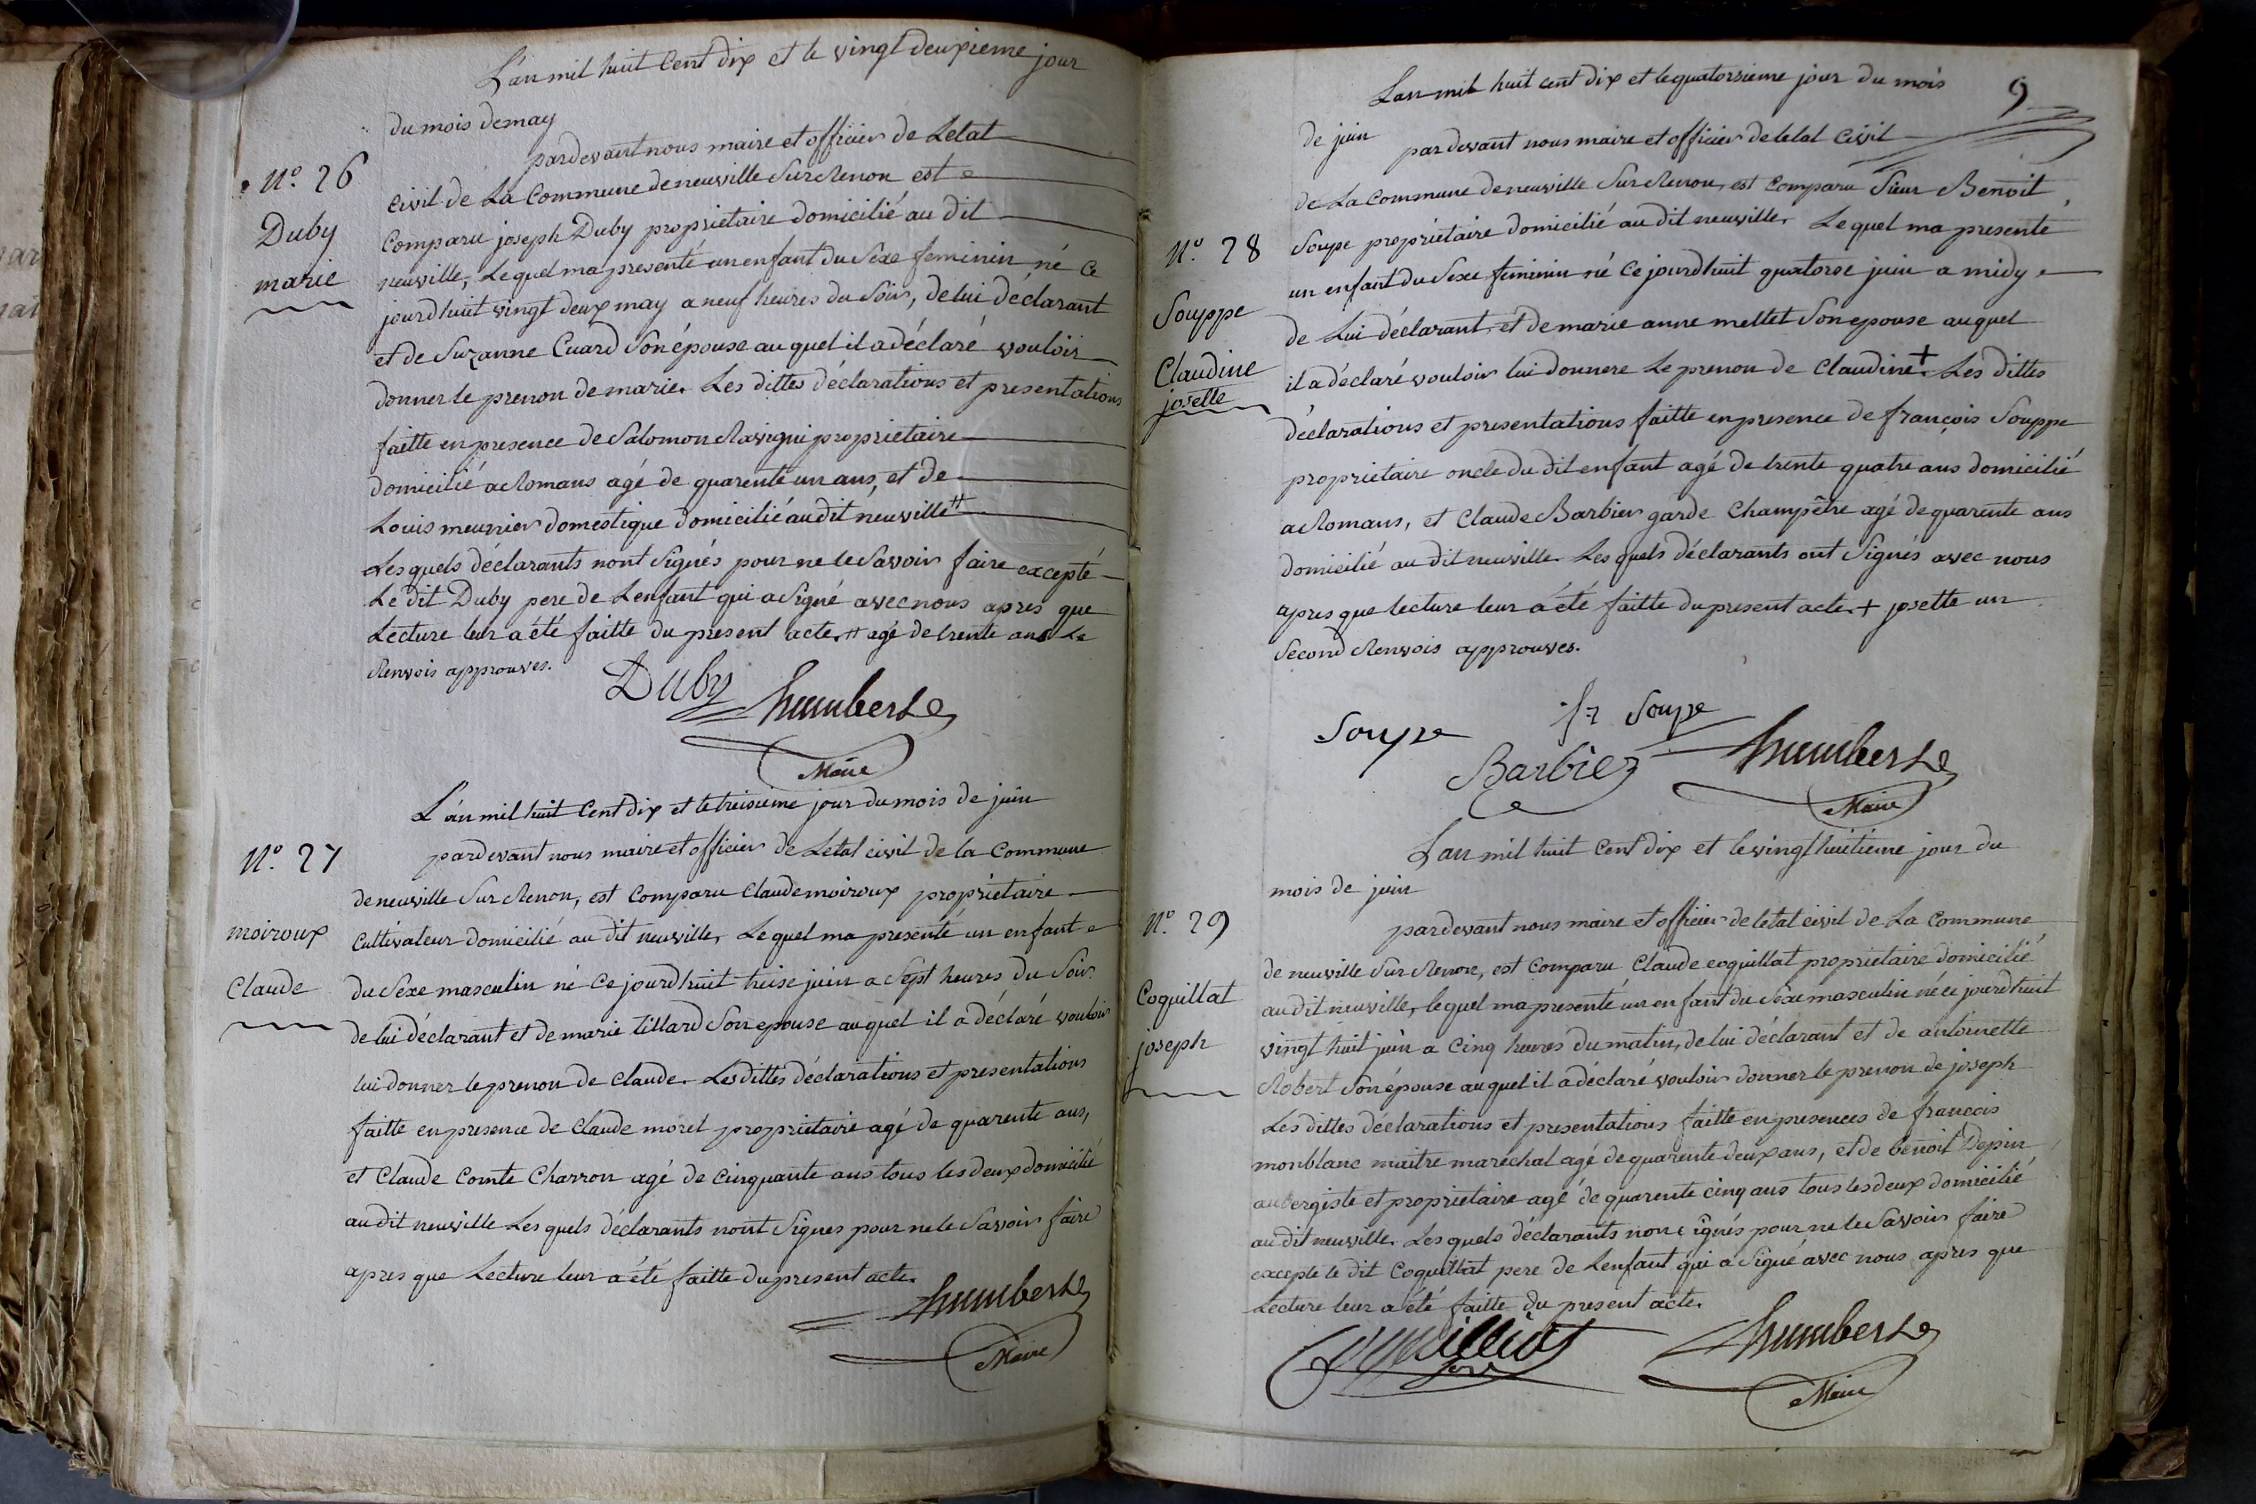 L'an mil huit Cent dix et le vingt deuxieme jour
du mois de may
pardevant nous maire et officier de Letat
N.º 26
civil de La Commune de neuville Sur Renon est
Duby
Comparu joseph Duby propriétaire domicilié au dit
marie
neuville, Lequel ma presenté un enfant du Sexe feminin né ce
jourdhuit vingt deux may a neuf heures du Soir, de lui déclarant
et de Suzanne Cuard Son épouse au quel il a déclaré vouloir
donner le prenon de marie. Les dittes déclarations et presentations
faitte en presence de Salomon Ravigni propriétaire
domicilié a Romans agé de quarente un ans, et de
Louis meunier domestique domicilié au dit neuville #
Les quels déclarants nont Signés pour ne le Savoir faire excepté
Le dit Duby pere de Lenfant qui a Signé avec nous apres que
Lecture leur a été faitte du present acte. # agé de trente ans Le
Renvois approuves.
Duby humbert
Maire
L'an mil huit Cent dix et le treisieme jour du mois de juin
pardevant nous maire et officier de Letat civil de la Commune
N.º 27
de neuville Sur Renon, est Comparu Claude moiroux propriétaire
moiroux
Cultivateur domicilié au dit neuville, Lequel ma presenté un enfant
Claude
du Sexe masculin né Ce jourdhuit treise juin a Sept heures du Soir
de lui déclarant et de marie tillard Son epouse au quel il a déclaré vouloir
lui donner le prenon de Claude. Les dittes déclarations et presentations
faitte en presence de Claude morel propriétaire agé de quarente ans,
et Claude Comte Charron agé de Cinquante ans tous les deux domicilié
au dit neuville Les quels déclarants nont Signes pour ne le Savoir faire
apres que Lecture leur a été faitte du present acte.
humbert
Maire
9
L'an mil huit cent dix et le quatorsieme jour du mois
de juin
par devant nous maire et officier de letat Civil
de La Commune de neuville Sur Renon, est Comparu Sieur Benoit
N.º 28
Soupe propriétaire domicilié au dit neuville. Lequel ma presente
un enfant du Sexe feminin né Ce jourdhuit quatorse juin a midy
Souppe
de Lui déclarant et de marie anne mellet Son epouse auquel
Claudine
il a déclaré vouloir lui donnere Le prenon de Claudine + Les dittes
josette
déclarations et presentations faitte en presence de françois Souppe
propriétaire oncle du dit enfant agé de trente quatre ans domicilié
a Romans, et Claude Barbier garde Champêtre agé de quarente ans
domicilié au dit neuville. Les quels déclarants ont Signés avec nous
apres que lecture leur a été faitte du present acte. + josette un
Second Renvois approuves.
Soupe fr Soupe
Barbier humbert
Maire
L'an mil huit Cent dix et le vingt huitieme jour du
mois de juin
N.º 29
pardevant nous maire et officier de letat civil de La Commune
de neuville Sur Renon, est Comparu Claude coquillat propriétaire domicilié
Coquillat
au dit neuville, lequel ma presenté un enfant du Sexe masculin né ce jourdhuit
joseph
vingt huit juin a Cinq heures du matin, de lui déclarant et de antoinette
Robert Son épouse au quel il a déclaré vouloir donner le prenon de joseph
Les dittes déclarations et presentations faitte en presences de francois
monblanc maitre marechal agé de quarente deux ans, et de benoit Depin
aubergiste et propriétaire agé de quarente cinq ans tous les deux domicilié
au dit neuville. Les quels déclarants non signés pour ne le Savoir faire
excepte le dit Coquillat pere de Lenfant qui a Signé avec nous apres que
Lecture leur a été faitte du present acte.
humbert
Maire